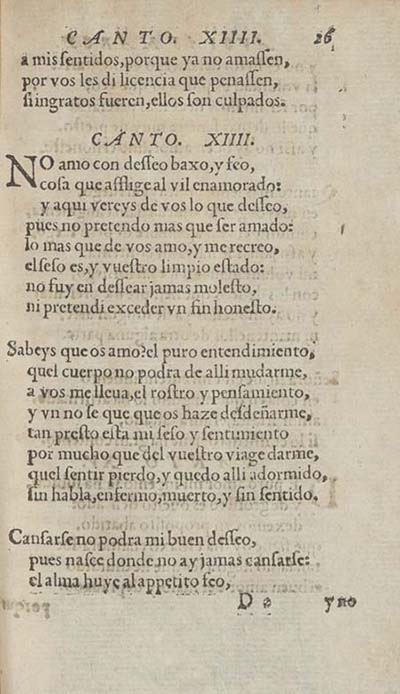 CANTO. XIIII. 26
a mis sentidos, porque ya no amassen,
por vos les di licencia que penassen,
si ingratos fueren, ellos son culpados.
CANTO. XIIII.
NO amo con desseo baxo, y feo,
cosa que afflige al vil enamorado:
y aqui vereys de vos lo que desseo,
pues no pretendo mas que ser amado:
lo mas que de vos amo, y me recreo,
el seso es, y vuestro limpio estado:
no fuy en dessear jamas molesto,
ni pretendi exceder vn fin honesto.
Sabeys que os amo? el puro entendimiento,
quel cuerpo no podra de alli mudarme,
a vos me lleua, el rostro y pensamiento,
y vn no se que que os haze desdeñarme,
tan presto esta mi seso y sentimiento
por mucho que del vuestro viage darme,
quel sentir pierdo, y quedo alli adormido,
sin habla, enfermo, muerto, y sin sentido.
Cansarse no podra mi buen desseo,
pues nasce donde no ay jamas cansarse:
el alma huye al appetito feo,
D 2 y no